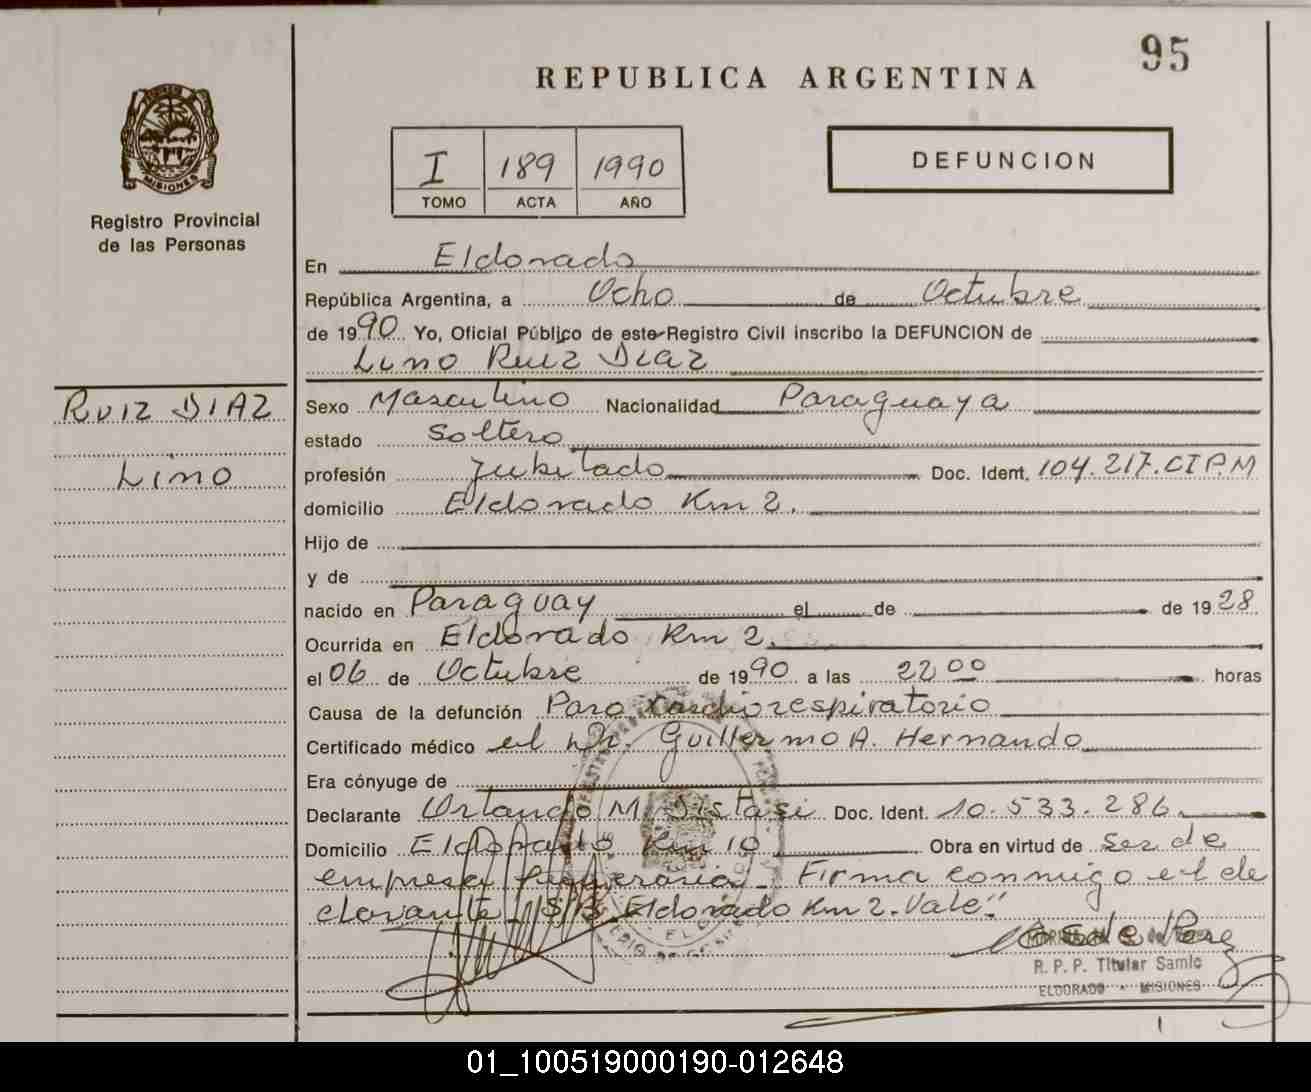 95
REPUBLICA ARGENTINA
MISIONES
Registro Provincial
de las Personas
I 189 1990
TOMO ACTA AÑO
DEFUNCION
En Eldorado
República Argentina, a Ocho de Octubre
de 1990 Yo, Oficial Público de este Registro Civil inscribo la DEFUNCION de
Lino Ruiz Diaz
RUIZ DIAZ
Lino
Sexo Masculino Nacionalidad Paraguaya
estado Soltero
profesión Jubilado Doc. Ident. 104.217.CIPM
domicilio Eldorado Km 2.
Hijo de
y de
nacido en Paraguay el de de 1928
Ocurrida en Eldorado Km 2.
el 06 de Octubre de 1990 a las 22 00 horas
Causa de la defunción Paro Cardiorespiratorio
Certificado médico el Dr. Guillermo A. Hernando
Era cónyuge de
Declarante Orlando M. Distasi Doc. Ident. 10.533.286
Domicilio Eldorado Km 10 Obra en virtud de Ser de
empresa funeraria. Firma conmigo el de
clarante. S/B Eldorado Km 2. Vale"
R. P. P. Titular Samic
ELDORADO - MISIONES
01_100519000190-012648